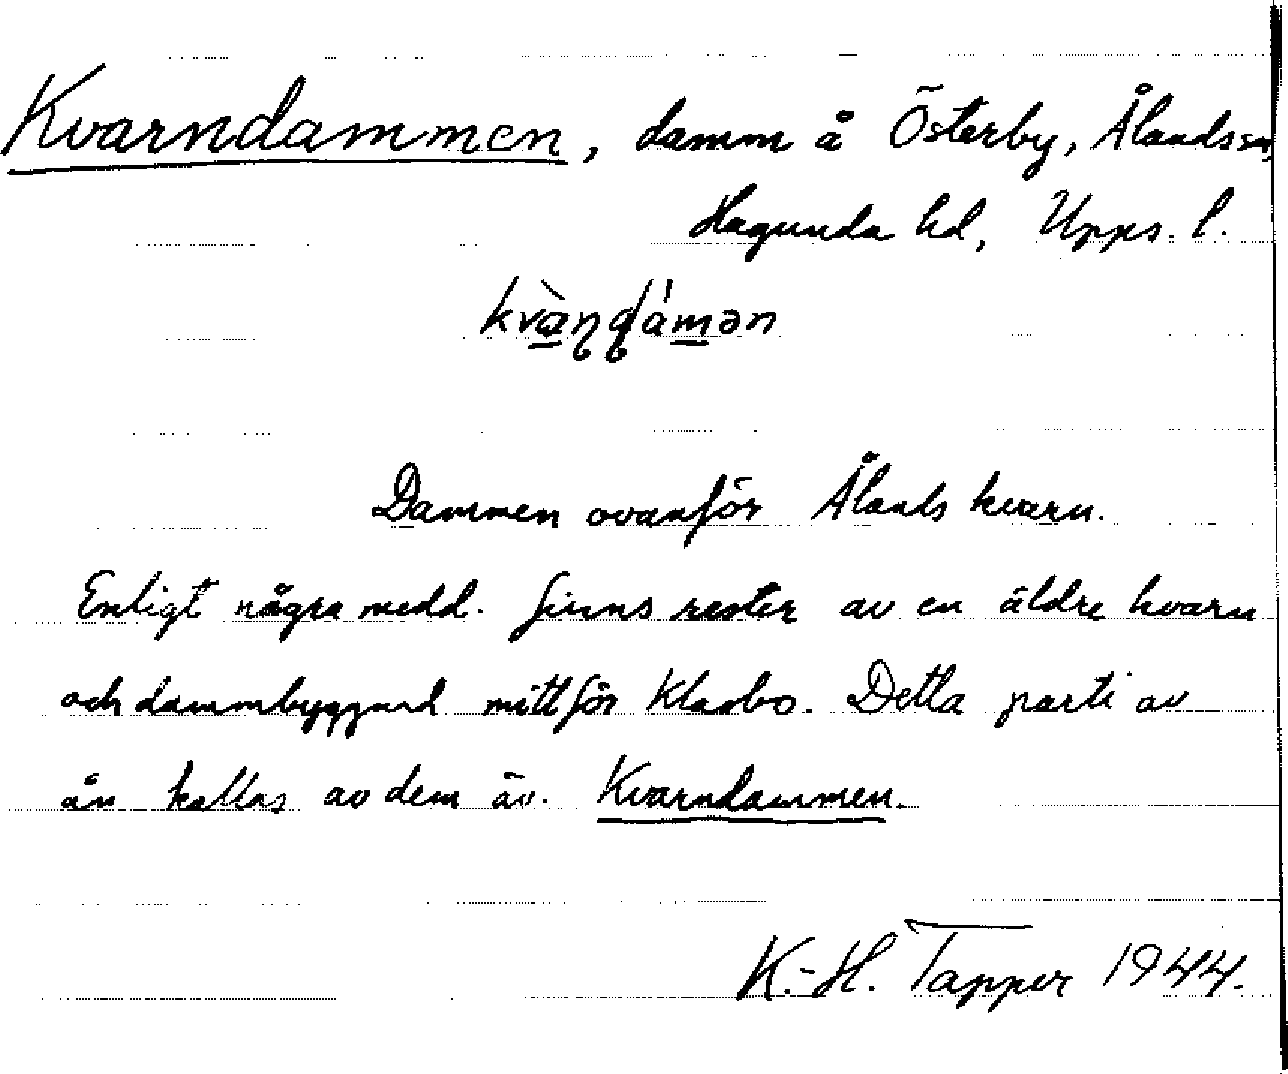 Kvarndammen, damm å Österby, Ålands sn,
Hagunda hd, Upps. l.
Dammen ovanför Ålands kvarn.
Enligt några medd. finns rester av en äldre kvarn
och dammbyggnad mittför Klasbo. Detta parti av
ån kallas av dem äv. Kvarndammen.
K.-H. Tapper 1944.